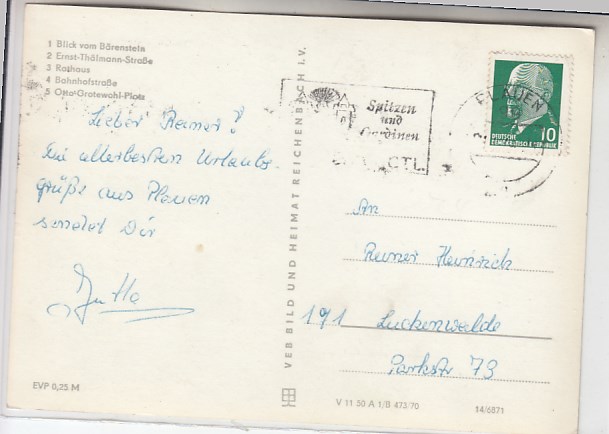 1 Blick vom Bärenstein
2 Ernst-Thälmann-Straße
3 Rathaus
4 Bahnhofstraße
5 Otto-Grotewohl-Platz
Lieber Reiner!
Die allerbesten Urlaubs-
grüße aus Plauen
sendet Dir
Jutta
EVP 0,25 M
VEB BILD UND HEIMAT REICHENBACH I. V.
Spitzen
und
Gardinen
PLAUEN
10
DEUTSCHE
DEMOKRATISCHE REPUBLIK
An
Reiner Heinrich
191 Luckenwalde
Parkstr 73
V 11 50 A 1/B 473/70
14/6871